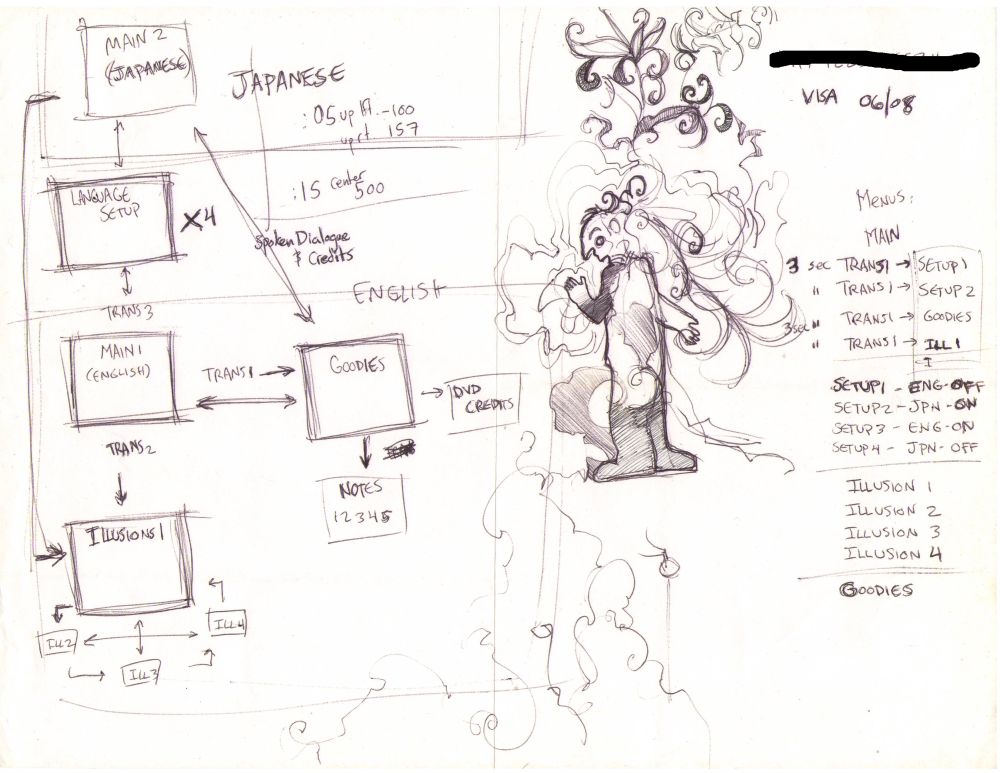 MAIN 2
(JAPANESE)
JAPANESE
:05 up lft. -100
up rt. 157
:15 center
500
LANGUAGE
SETUP
X4
Spoken Dialogue
& Credits
ENGLISH
TRANS 3
MAIN 1
(ENGLISH)
TRANS 1
GOODIES
DVD
CREDITS
TRANS 2
NOTES
1 2 3 4 5
ILLUSIONS 1
ILL 2
ILL 3
ILL 4
VISA 06/08
MENUS:
MAIN
3 sec TRANS 1 → SETUP 1
" TRANS 1 → SETUP 2
3 sec " TRANS 1 → GOODIES
" TRANS 1 → ILL 1
I
SETUP1 - ENG-OFF
SETUP2 - JPN-ON
SETUP3 - ENG-ON
SETUP4 - JPN-OFF
ILLUSION 1
ILLUSION 2
ILLUSION 3
ILLUSION 4
GOODIES